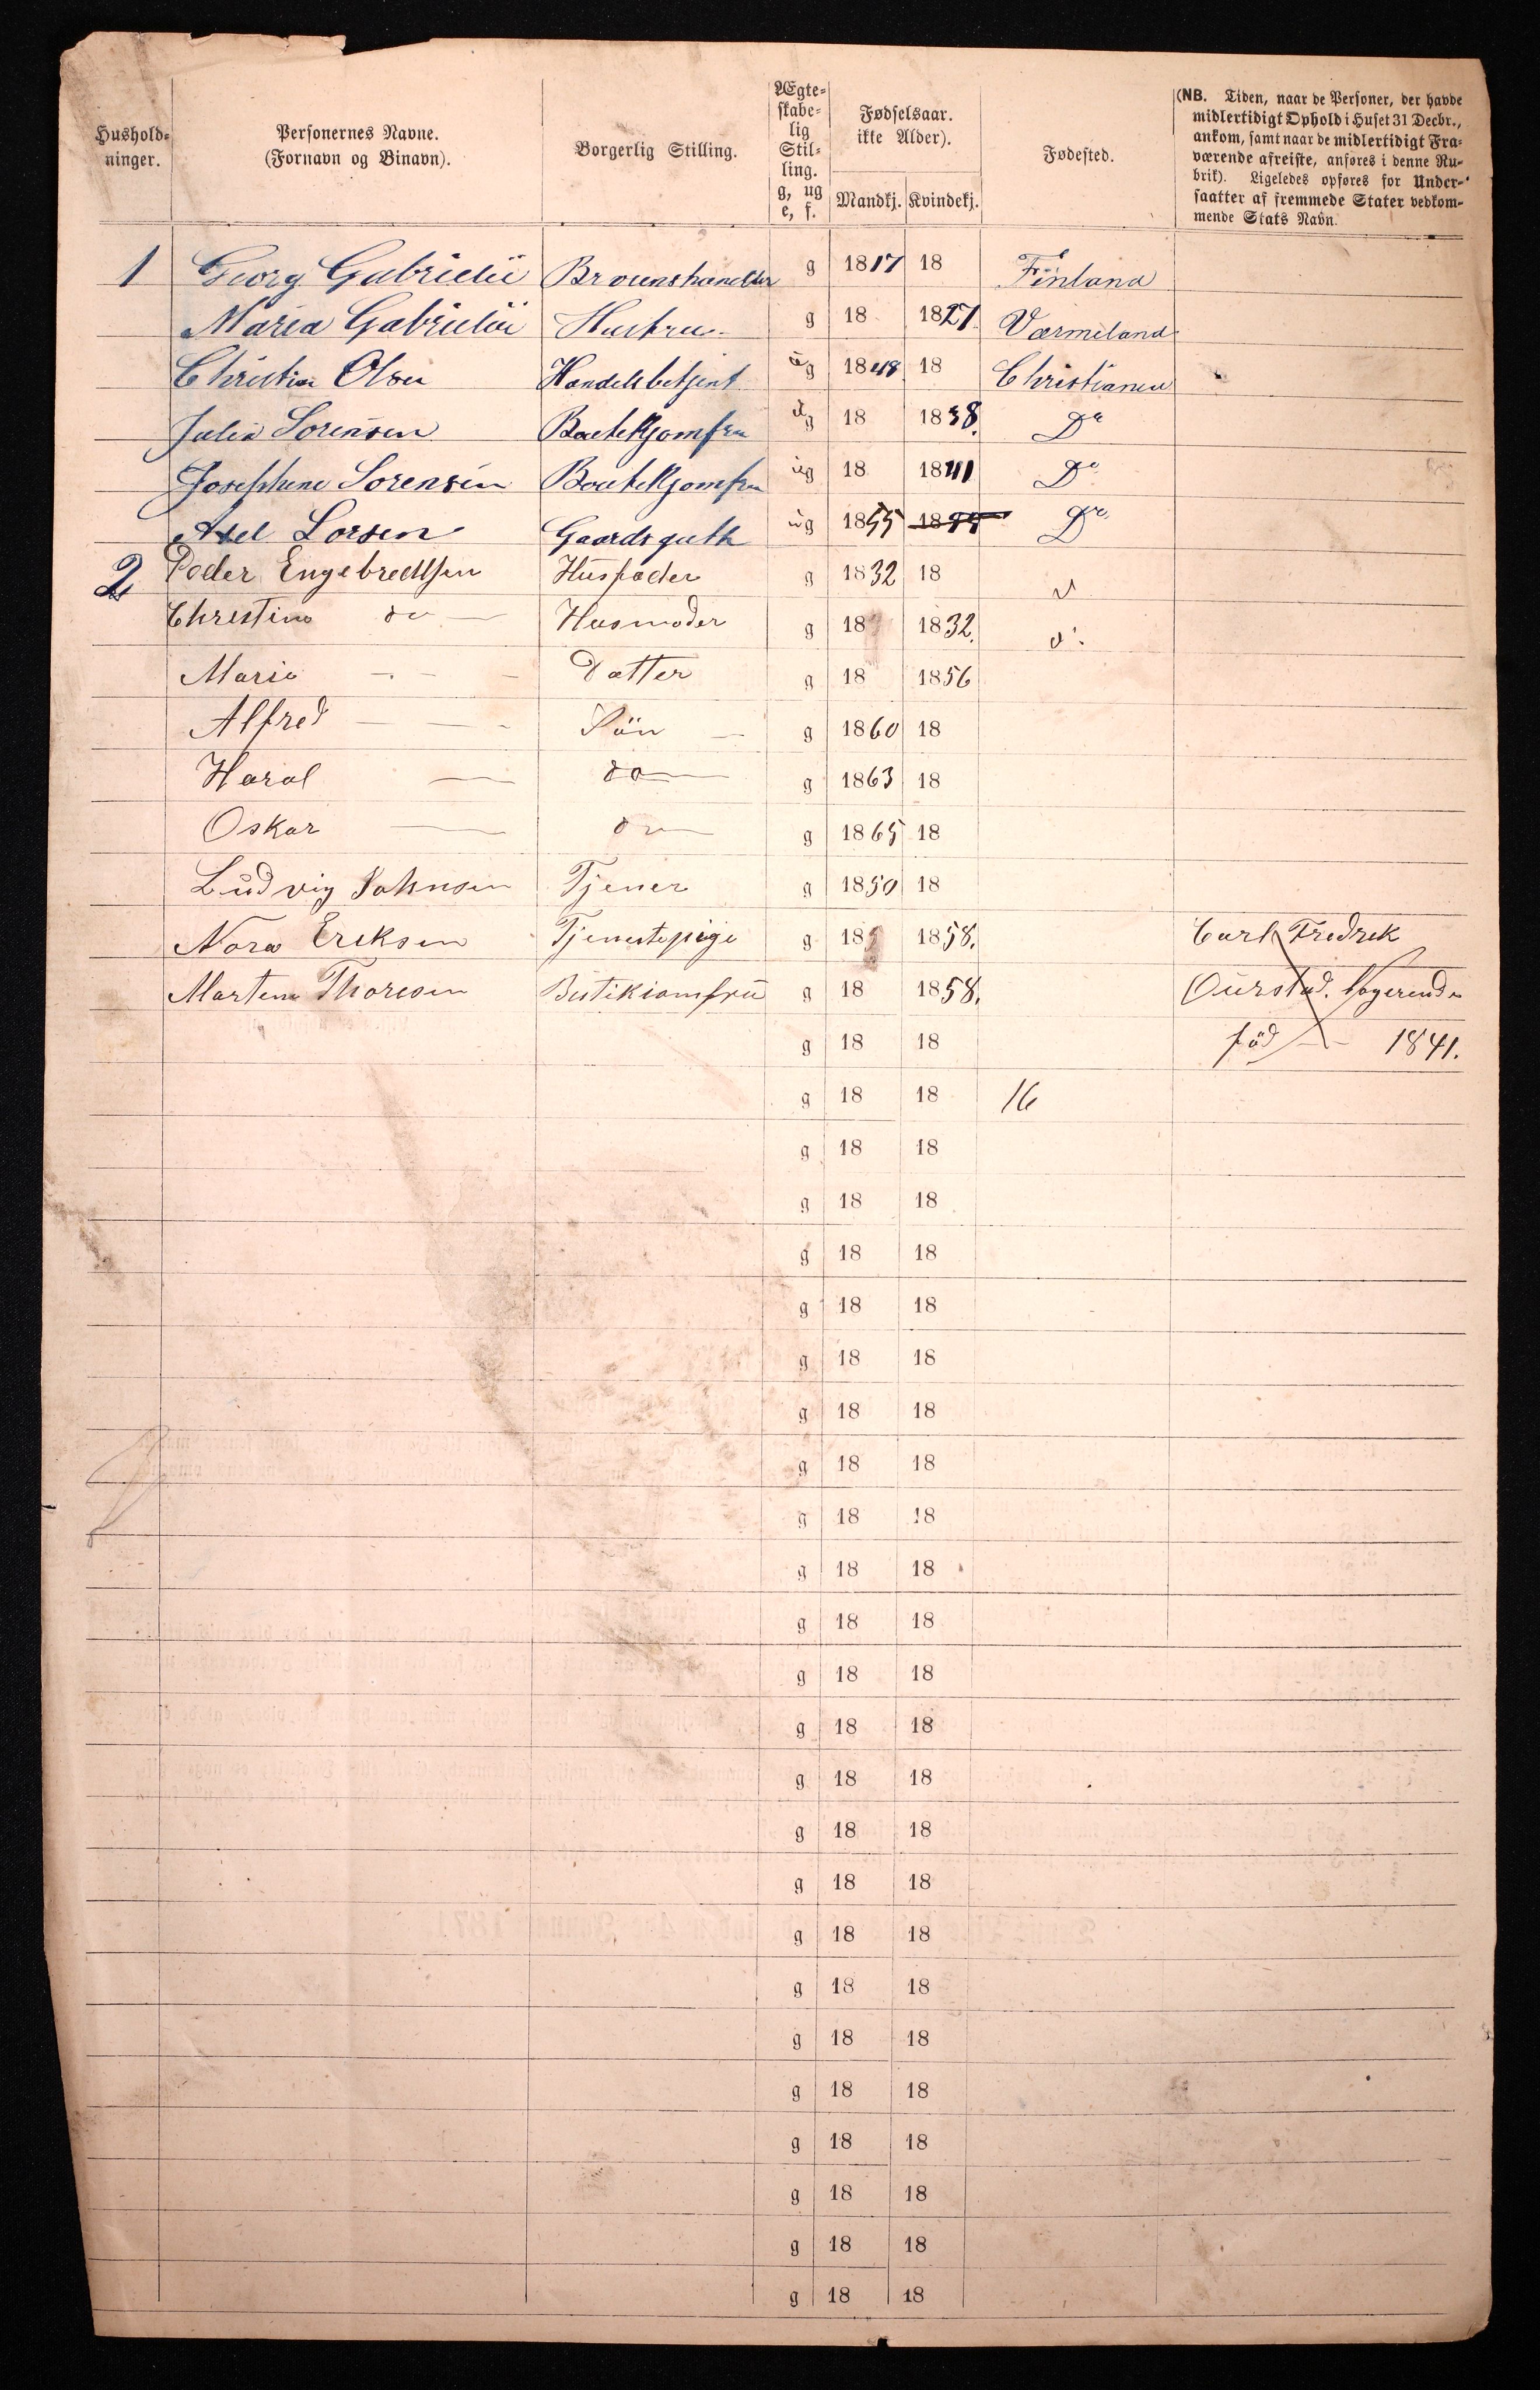 Hushold-
ninger.
Personernes Navne.
(Fornavn og Binavn).
Borgerlig Stilling.
Ægte-
skabe-
lig
Stil-
ling.
g, ug
e, f.
Fødselsaar.
ikke Alder).
Mandkj. Kvindekj.
Fødested.
(NB. Tiden, naar de Personer, der havde
midlertidigt Ophold i Huset 31 Decbr.,
ankom, samt naar de midlertidigt Fra-
værende afreiste, anføres i denne Ru-
brik). Ligeledes opføres for Under-
saatter af fremmede Stater vedkom-
mende Stats Navn.
1 Georg Gabrielii g 1817 18 Finland
Maria Gabrielii Hustru g 18 1827. Värmeland
Christian Olsen Handelsbetjent ug 1848 18 Christiania
Julia Sorensen ug 18 1838. Do
Josephine Sorensen ug 18 1841 Do
Axel Lorsen Gaardsguth ug 1855 18 Do
2 Peder Engebrethsen Husfader g 1832 18 d
Christine do — Husmoder g 18 1832. do
Marie - - - Datter g 18 1856
Alfred — — - Sön — g 1860 18
Haral — do — g 1863 18
Oskar — do — g 1865 18
Ludvig Johnsen Tjener g 1850 18
Nora Eriksen Tjenestepige g 185 1858. Carl Fredrek
Martene Thoresen Butikiomfrü g 18 1858. Logerende
g 18 18 föd — 1841.
g 18 18 16
g 18 18
g 18 18
g 18 18
g 18 18
g 18 18
g 18 18
g 18 18
g 18 18
g 18 18
g 18 18
g 18 18
g 18 18
g 18 18
g 18 18
g 18 18
g 18 18
g 18 18
g 18 18
g 18 18
g 18 18
g 18 18
g 18 18
g 18 18